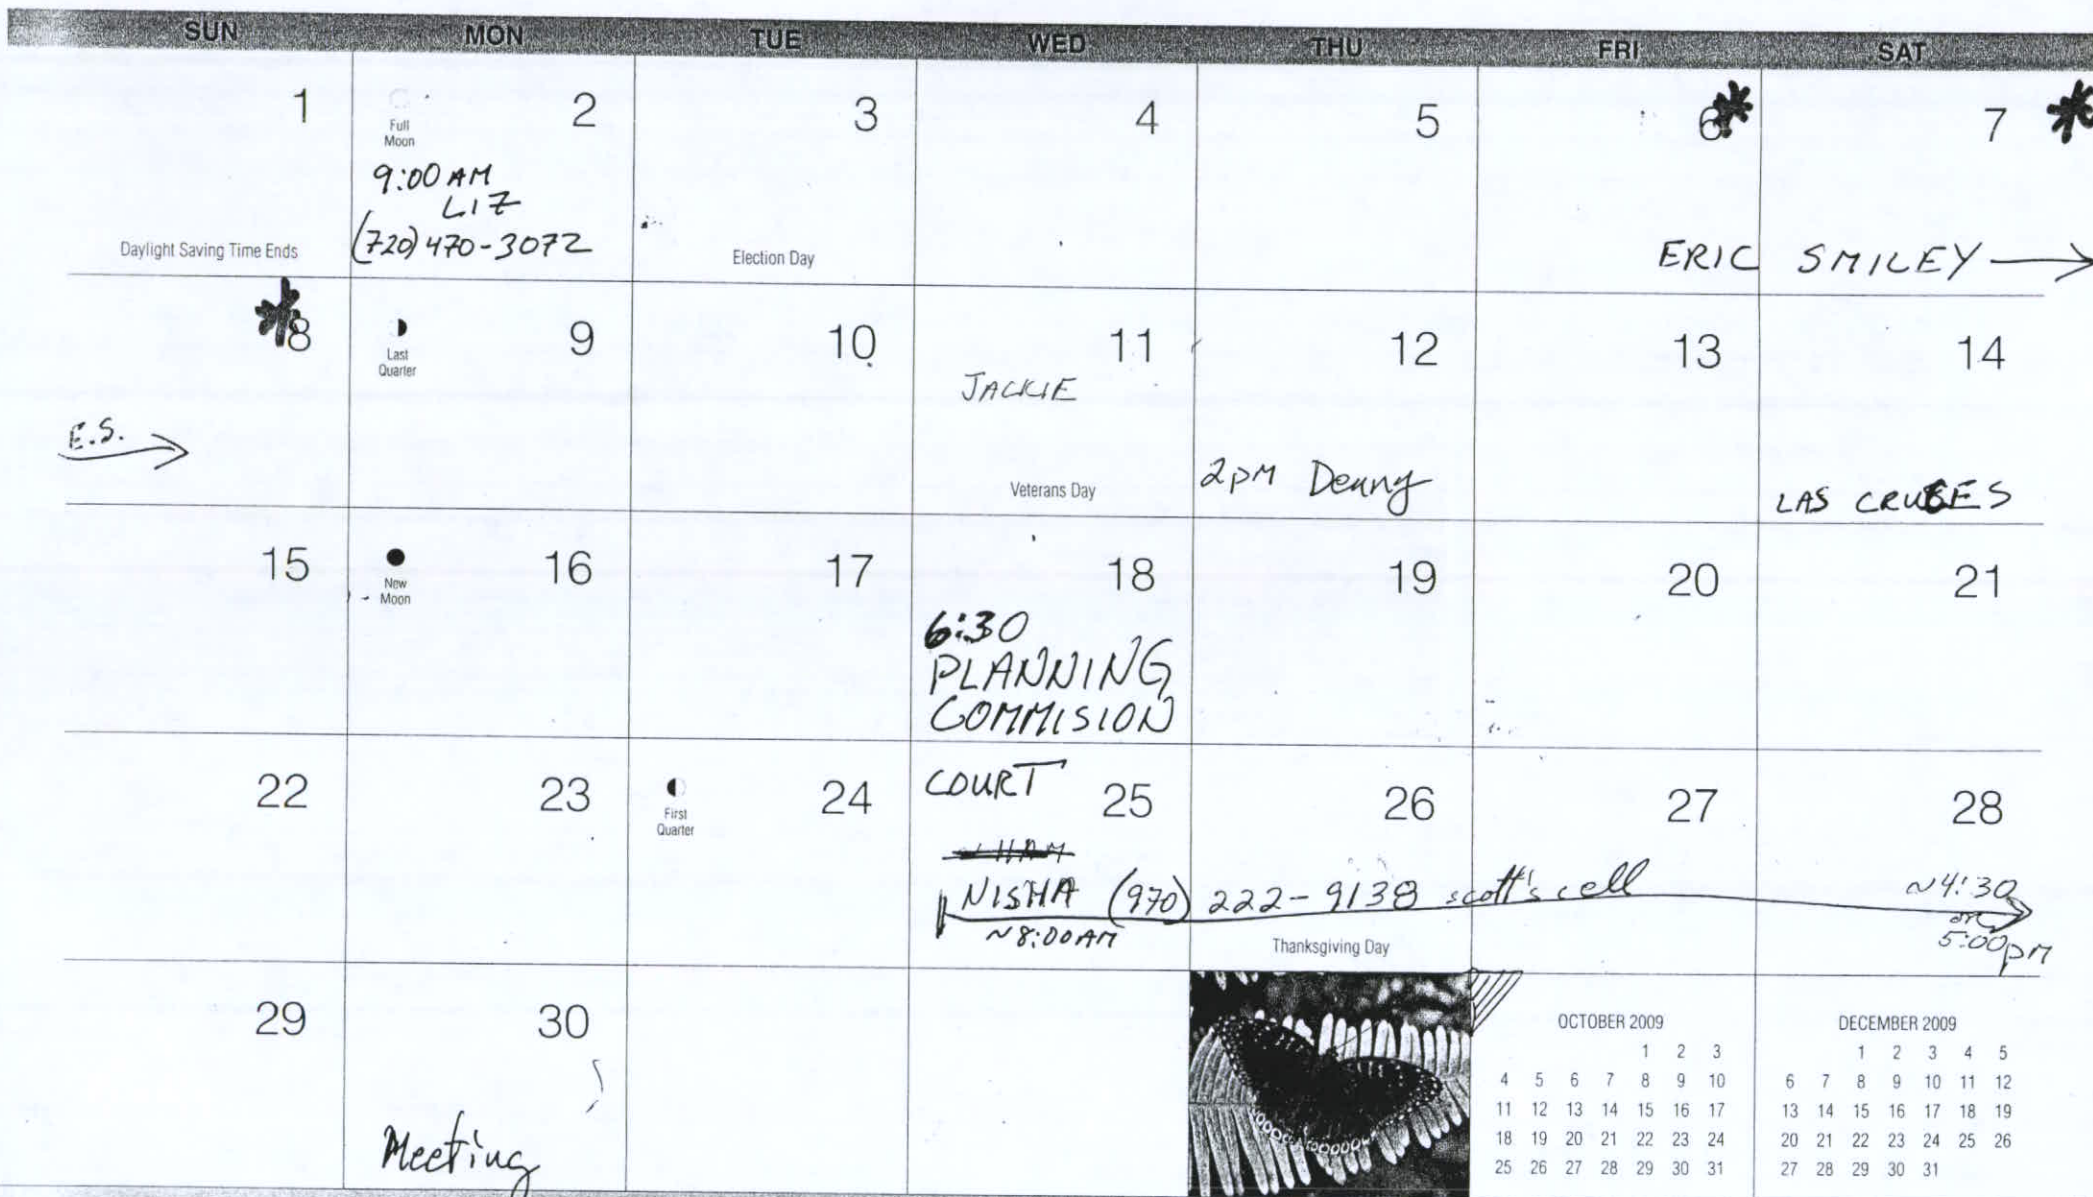 SUN MON TUE WED THU FRI SAT
1
Full
Moon
2
9:00 AM
LIZ
(720) 470-3072
3
4
5
6
7
Daylight Saving Time Ends
Election Day
ERIC SMILEY
8
Last
Quarter
9
10
11
JACKIE
12
13
14
E.S.
Veterans Day
2PM Denny
LAS CRUCES
15
New
Moon
16
17
18
6:30
PLANNING
COMMISION
19
20
21
22
23
First
Quarter
24
COURT
25
26
27
28
NISHA (970) 222-9138 scott's cell
~8:00AM
Thanksgiving Day
~4:30
or
5:00pm
29
30
Meeting
OCTOBER 2009
1 2 3
4 5 6 7 8 9 10
11 12 13 14 15 16 17
18 19 20 21 22 23 24
25 26 27 28 29 30 31
DECEMBER 2009
1 2 3 4 5
6 7 8 9 10 11 12
13 14 15 16 17 18 19
20 21 22 23 24 25 26
27 28 29 30 31